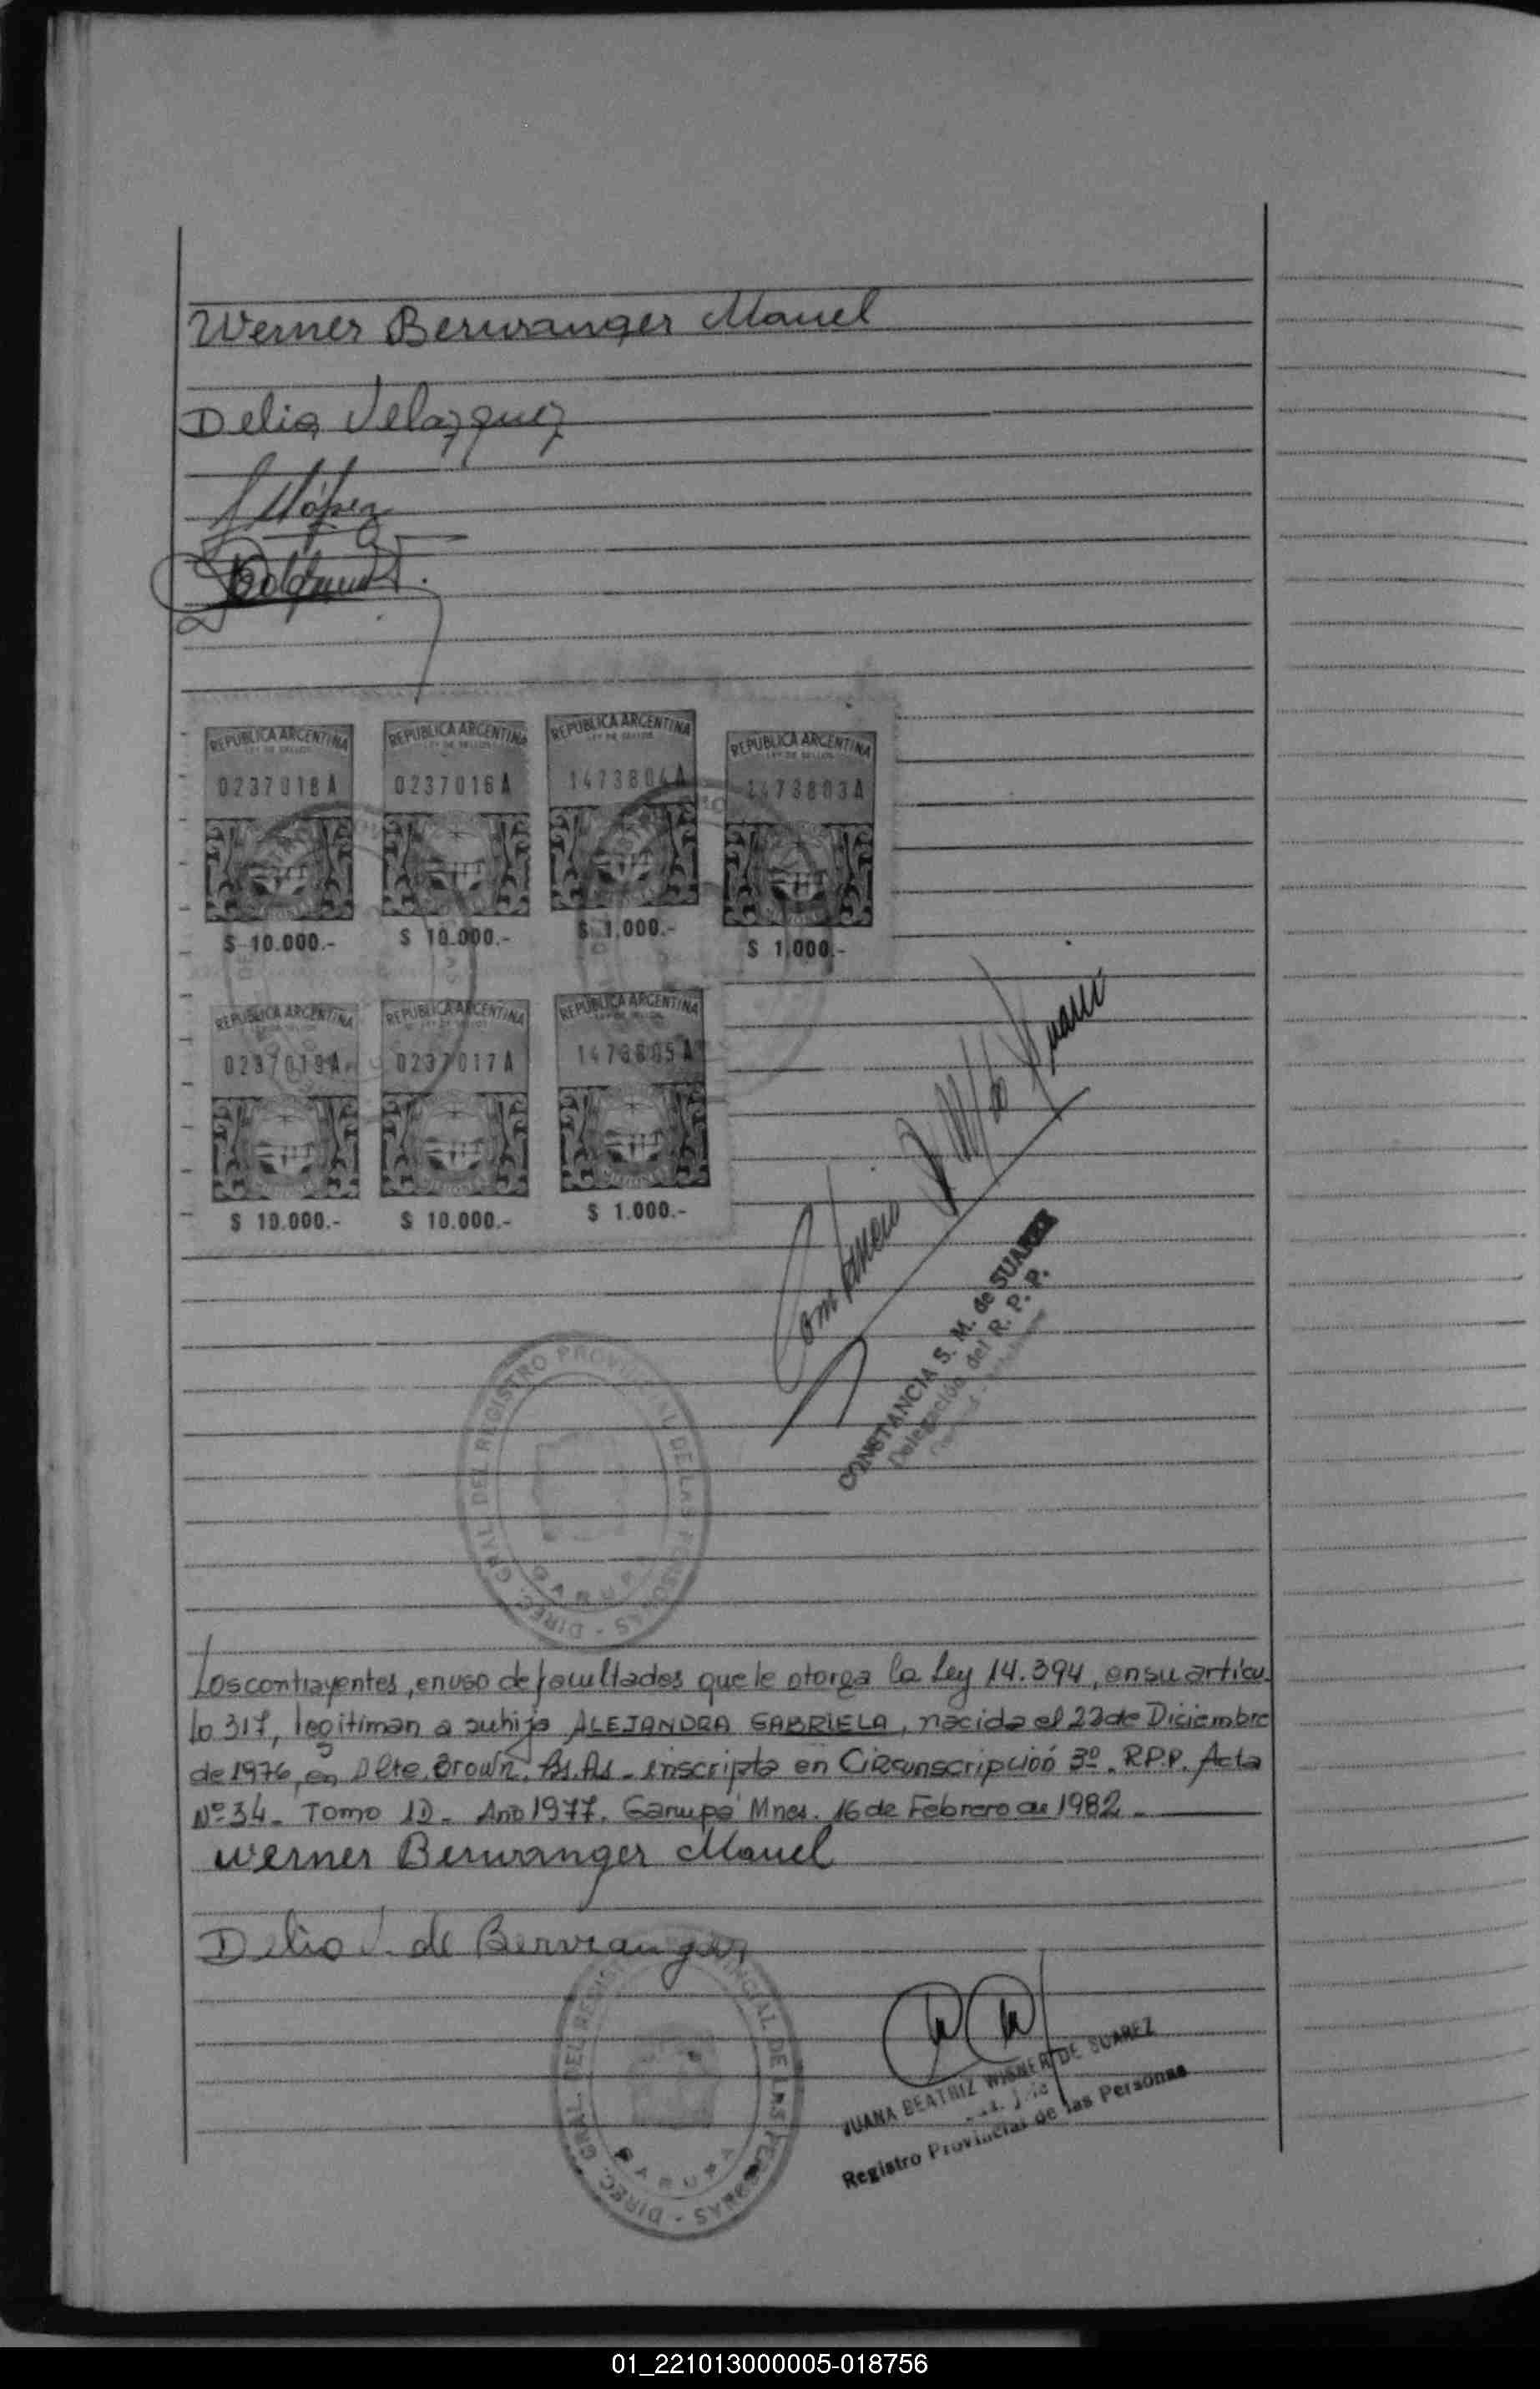 Werner Berwranger Manel
Delia Velazquez
López
REPUBLICA ARGENTINA
LEY DE SELLOS
0237018A
$ 10.000.-
REPUBLICA ARGENTINA
LEY DE SELLOS
0237016A
$ 10.000.-
REPUBLICA ARGENTINA
LEY DE SELLOS
1473804A
$ 1.000.-
REPUBLICA ARGENTINA
LEY DE SELLOS
1473803A
$ 1.000.-
REPUBLICA ARGENTINA
0237019A
$ 10.000.-
REPUBLICA ARGENTINA
0237017A
$ 10.000.-
REPUBLICA ARGENTINA
1473805A
$ 1.000.-
CONSTANCIA S. M. de SUAREZ
Delegación del R. P. P.
DIREC. GRAL. DEL REGISTRO PROVINCIAL DE LAS PERSONAS
GARUPA
Los contrayentes, en uso de facultades que le otorga la Ley 14.394, en su articu-
lo 317, legitiman a su hija ALEJANDRA GABRIELA, nacida el 23 de Diciembre
de 1976, en Alte. Brown. Bs.As - inscripta en Circunscripción 3º. R.P.P. Acta
Nº 34 - Tomo 1D - Año 1977. Garupá Mnes. 16 de Febrero de 1982 -
Werner Berwranger Manel
Delia V. de Bervranger
DIREC. GRAL. DEL REGISTRO PROVINCIAL DE LAS PERSONAS
GARUPA
JUANA BEATRIZ WISNER DE SUAREZ
Registro Provincial de las Personas
01_221013000005-018756